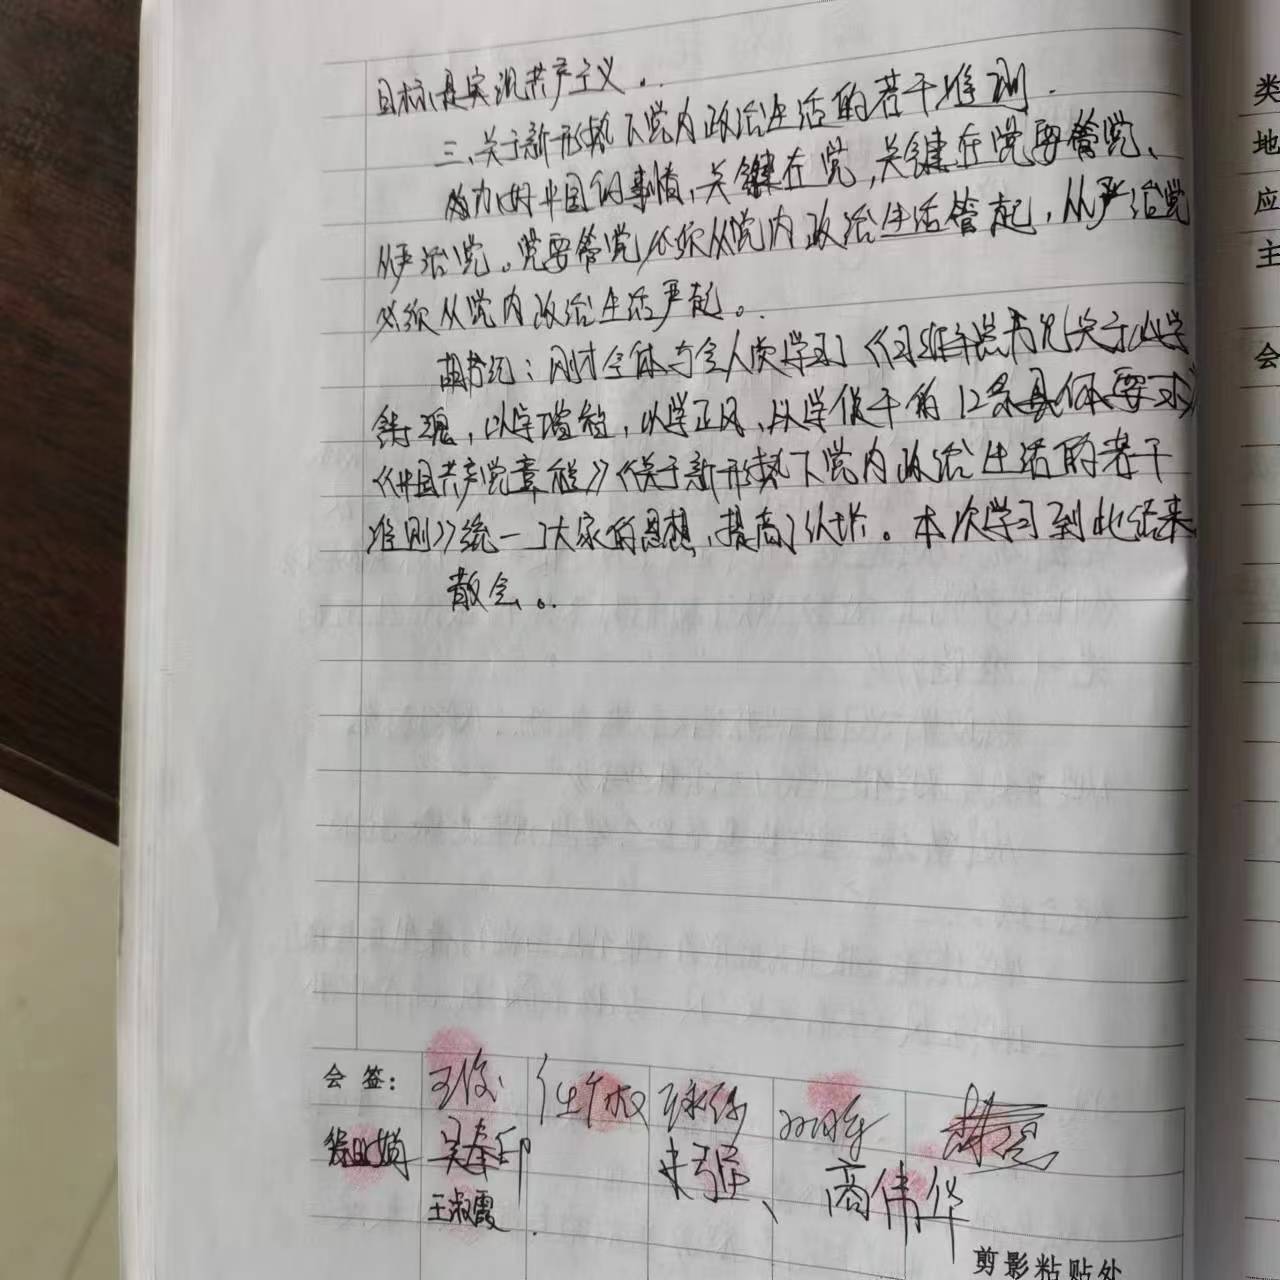 目标是实现共产主义。
三、关于新形势下党内政治生活的若干准则.
办好中国的事情,关键在党,关键在党要管党、
从严治党。党要管党必须从党内政治生活管起,从严治党
必须从党内政治生活严起。
胡书记:刚才全体与会人员学习《习近平总书记关于以学
铸魂,以学增智,以学正风,以学促干的12条具体要求》
《中国共产党章程》《关于新形势下党内政治生活的若干
准则》统一了大家的思想,提高了认识。本次学习到此结束
散会。
会 签:
王俊
吴奉印
宋强、
商伟华
王淑霞
剪影粘贴处
类
地
应
主
会